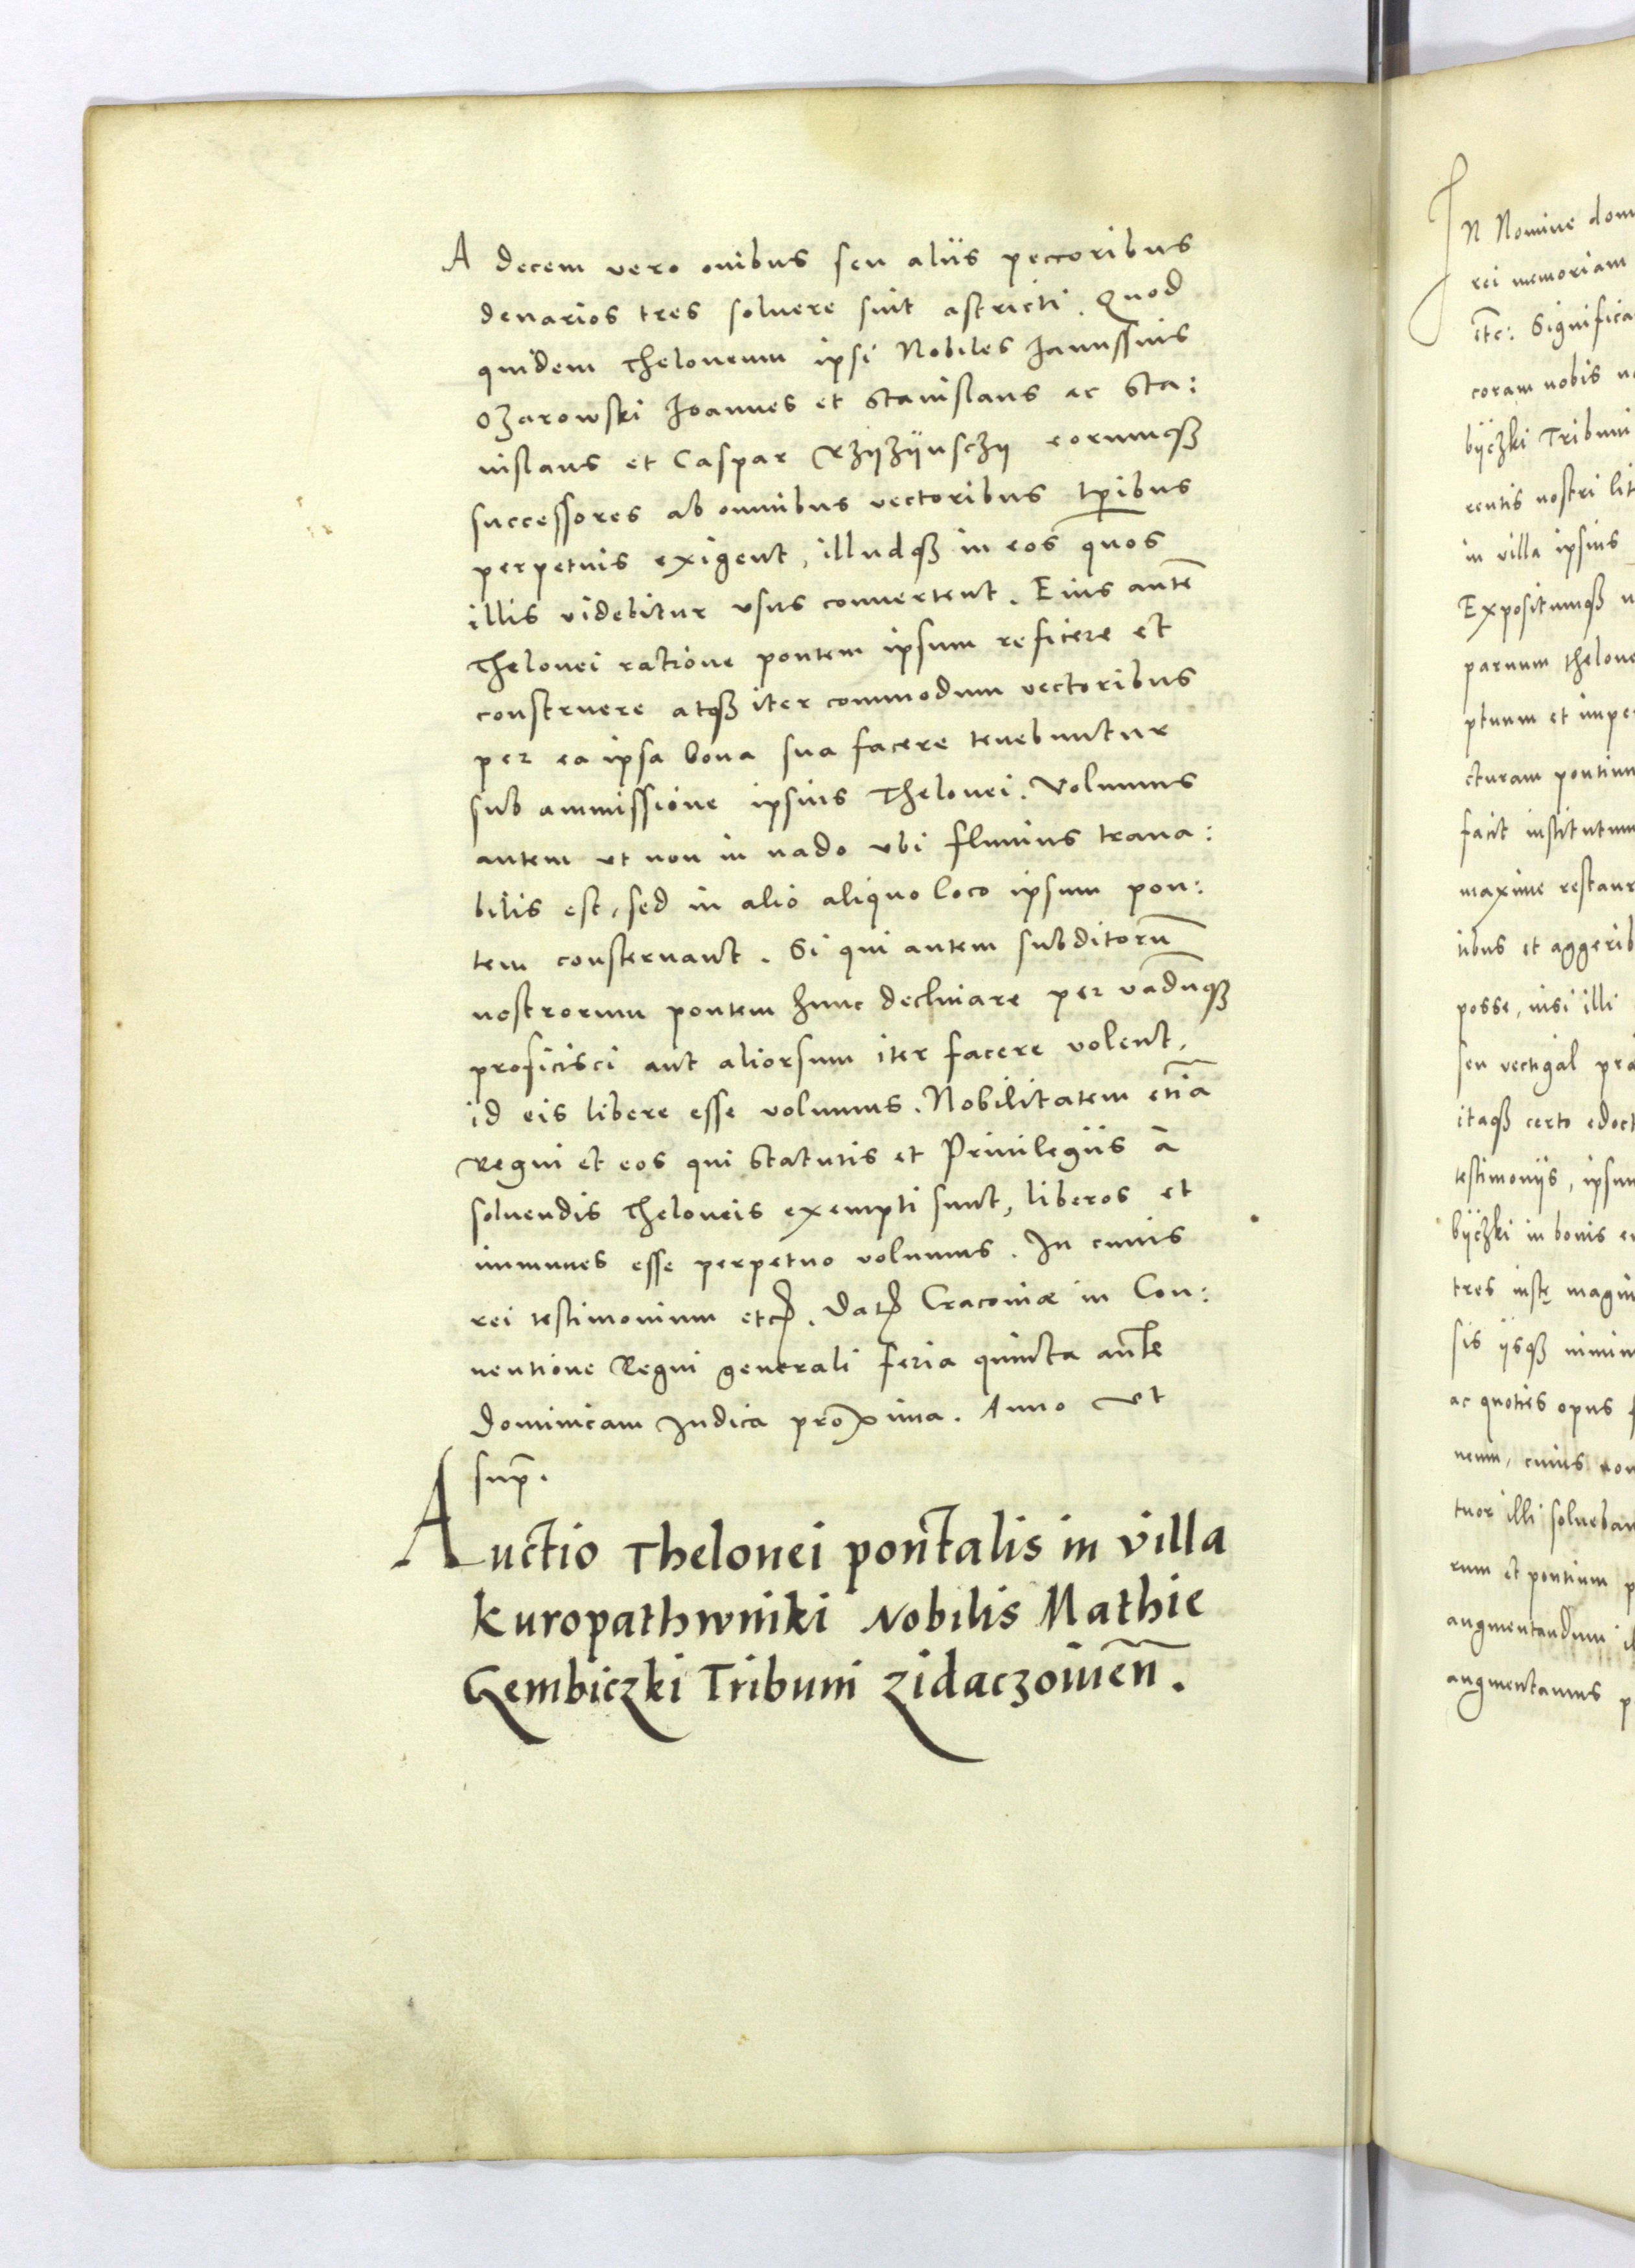 A decem vero ovibus seu aliis peccoribus
denarios tres solvere sint astricti. Quod
quidem Theloneum ipsi Nobiles Janussius
Ozarowski Joannes et Stanislaus ac Sta:
nislaus et Caspar Rzÿzÿnsczÿ eorumqꝫ
successores ab omnibus vectoribus tp̄ibus
perpetuis exigent, illudqꝫ in eos quos
illis videbitur usus convertent. Eius autē
Thelonei ratione pontem ipsum reficere et
construere atqꝫ iter commodum vectoribus
per ea ipsa bona sua facere tenebuntur
sub ammissione ipsius Thelonei. Volumus
autem ut non in vado ubi fluvius trana:
bilis est, sed in alio aliquo loco ipsum pon:
tem consternant. Si qui autem subditorū
nostrorum pontem hunc declinare per vadūqꝫ
proficisci aut aliorsum iter facere volent,
id eis libere esse volumus. Nobilitatem etiā
Regni et eos qui statutis et Privilegiis à
solvendis Theloneis exempti sunt, liberos et
immunes esse perpetuo volumus. In cuius
rei testimonium etc. Dat. Cracoviæ in Con:
ventione Regni generali feria quincta ante
Dominicam Judica proxima. Anno ut
sup̄.
Auctio Thelonei pontalis in villa
Kuropathwniki Nobilis Mathie
Gembiczki Tribuni Zidaczoviēn.
In Nomine
rei memoriam
etc: Significa
coram nobis
bÿczki Tribuni
rentis nostri
in villa ipsius
Expositumqꝫ
parvum
ptuum et
cturam pontium
facit institutum
maxime
tibus et
posse, nisi illi
seu vectigal
itaqꝫ certo
testimoniis,
bÿczki in bonis
tres
sis iisqꝫ
ac quoties opus
neum, cuius
tuor illi
rum et pontium
augmentandum
augmentamus